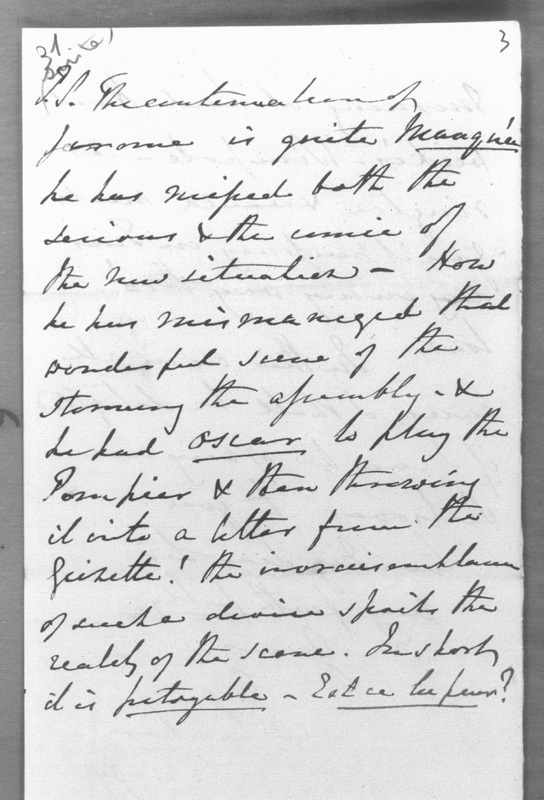 3
31
P.S. The continuation of
Jerome is quite Manqué
he has missed both the
serious & the comic of
the new situation – How
he has mismanaged that
wonderful scene of the
storming the assembly – &
he had Oscar to play the
Pompier & then throwing
it into a letter from the
Grisette! the invraisemblance
of such a device spoils the
reality of the scene. In short
it is pitoyable – Est ce la peur?